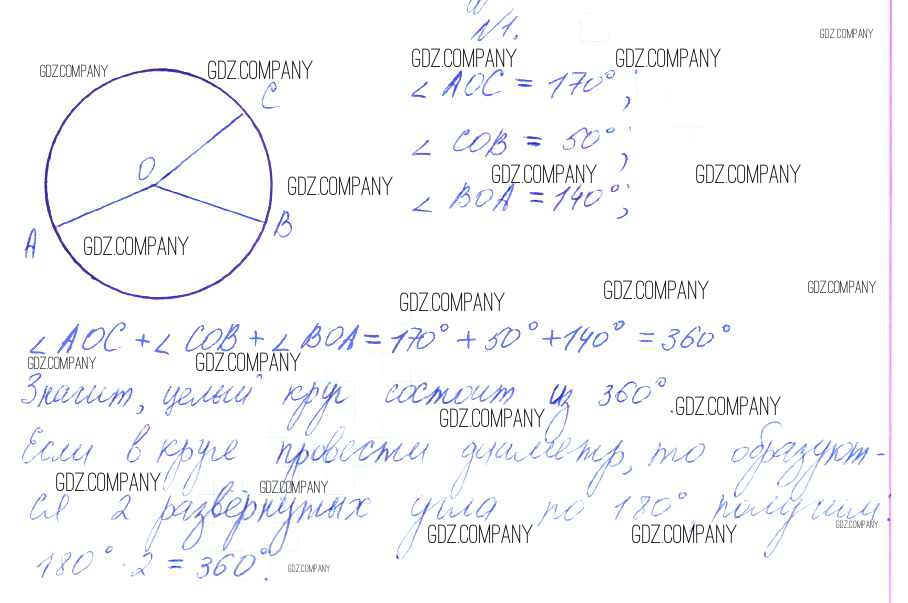 №1.
GDZ.COMPANY
GDZ.COMPANY GDZ.COMPANY
GDZ.COMPANY GDZ.COMPANY
C
∠ AOC = 170°;
∠ COB = 50°;
O
GDZ.COMPANY GDZ.COMPANY
GDZ.COMPANY
∠ BOA = 140°;
B
A
GDZ.COMPANY
GDZ.COMPANY GDZ.COMPANY GDZ.COMPANY
∠ AOC + ∠ COB + ∠ BOA = 170° + 50° + 140° = 360°
GDZ.COMPANY GDZ.COMPANY
Значит, целый круг состоит из 360°.
GDZ.COMPANY GDZ.COMPANY
Если в круге провести диаметр, то образуют-
GDZ.COMPANY GDZ.COMPANY
ся 2 развёрнутых угла по 180°, получим:
GDZ.COMPANY GDZ.COMPANY GDZ.COMPANY
180° · 2 = 360°.
GDZ.COMPANY